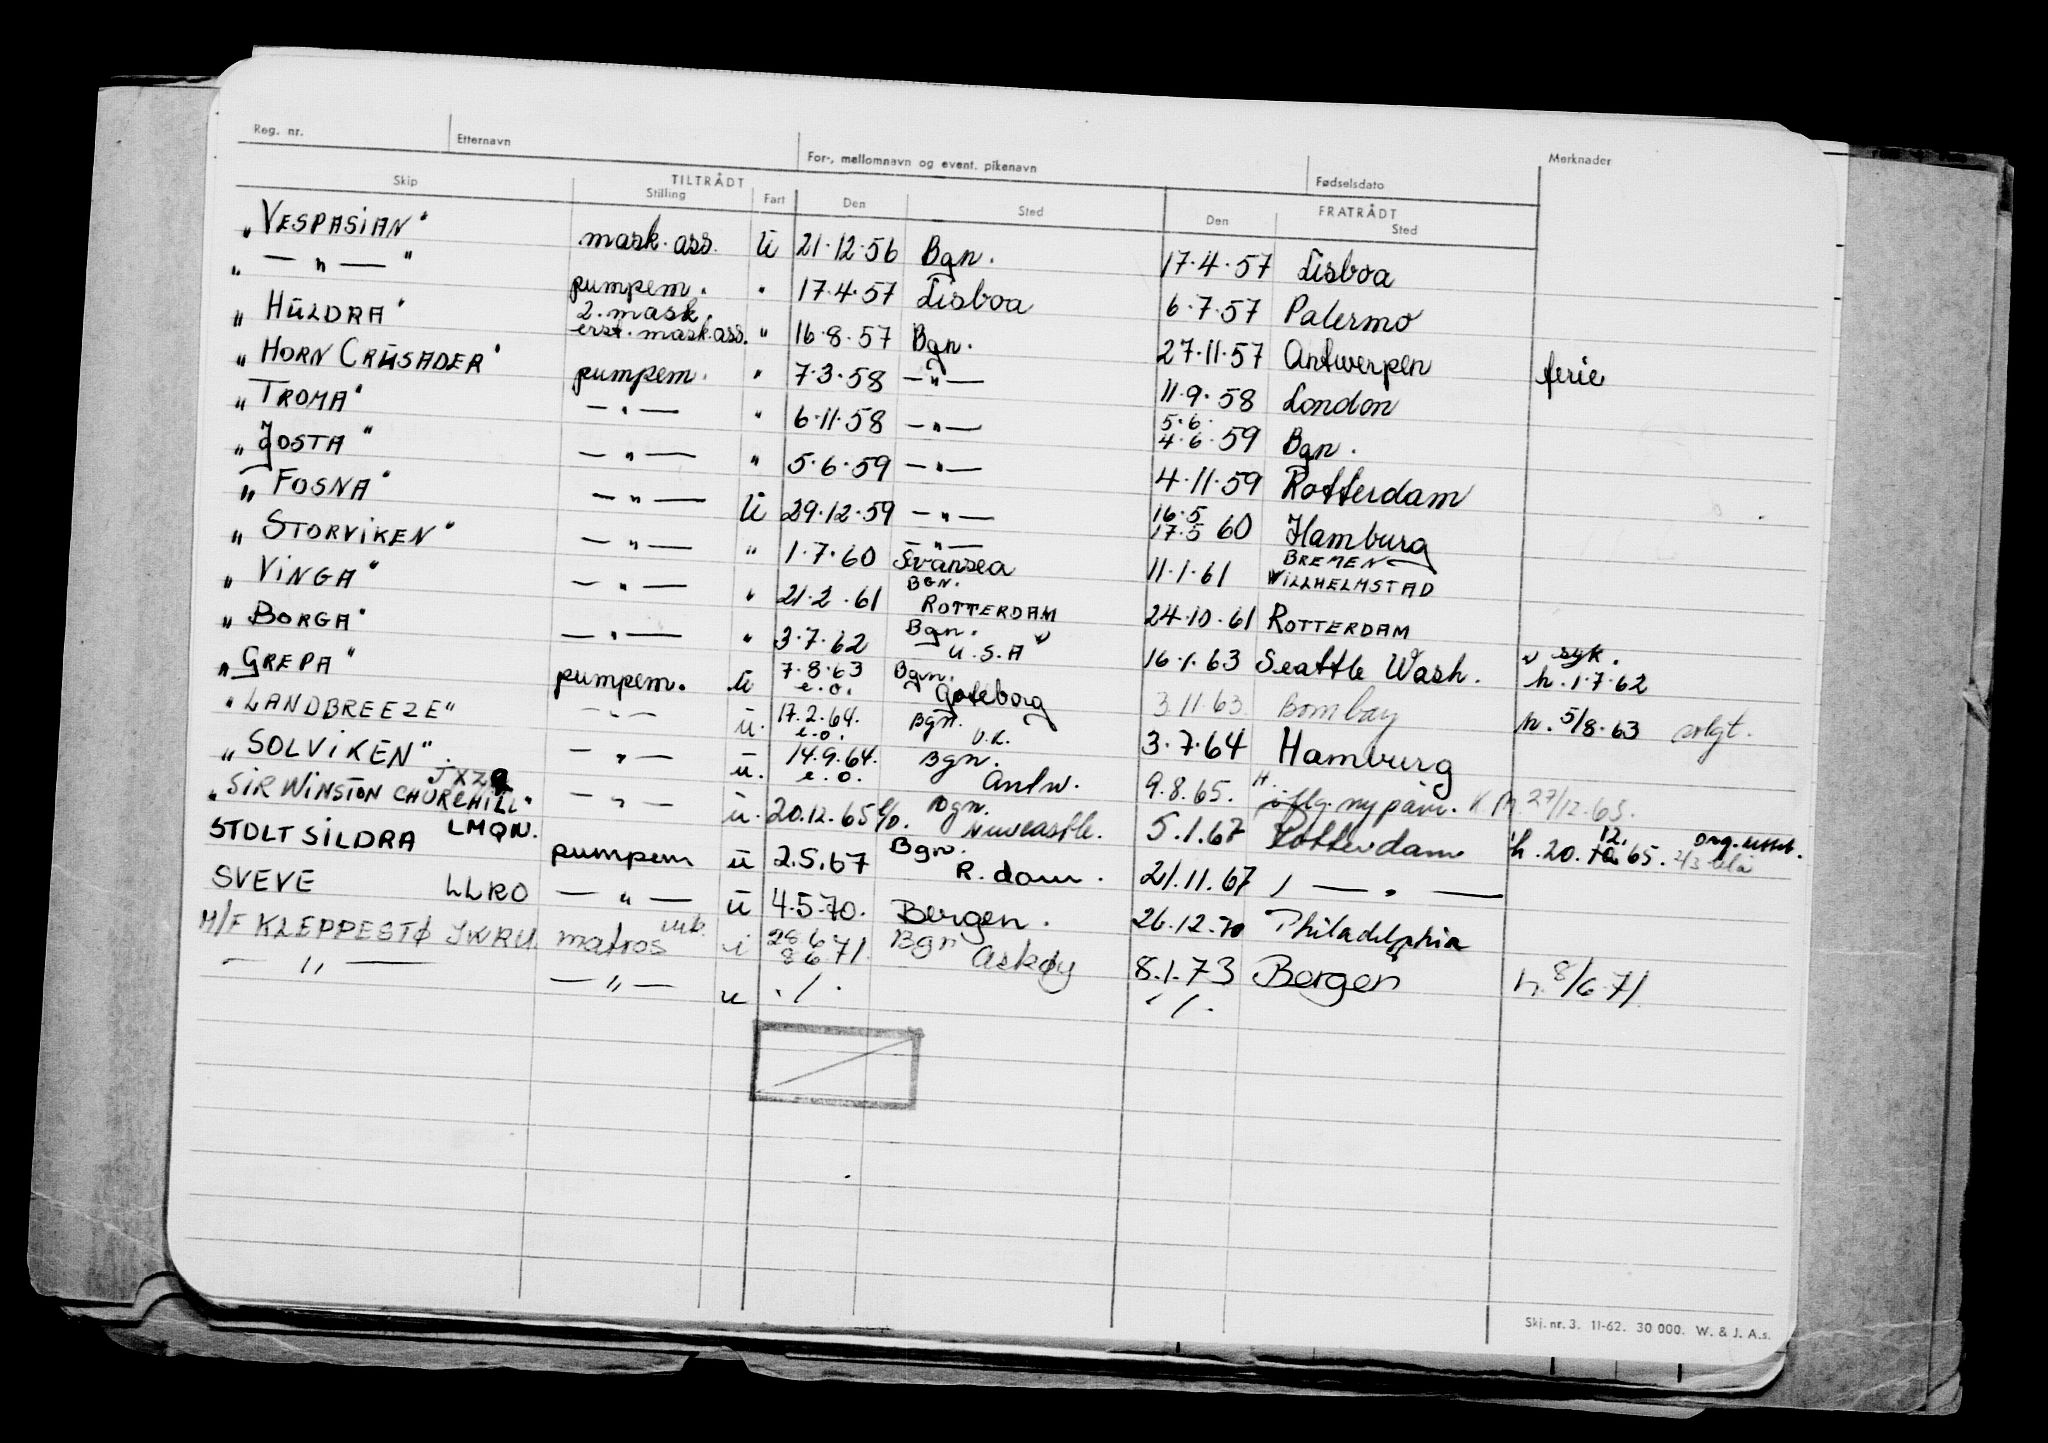 Reg. nr. Etternavn For-, mellomnavn og event. pikenavn Fødselsdato Merknader
TILTRÅDT FRATRÅDT
Skip Stilling Fart Den Sted Den Sted
"VESPASIAN" mask. ass. U 21.12.56 Bgn. 17.4.57 Lisboa
" — " — " pumpem. " 17.4.57 Lisboa 6.7.57 Palermo
"HULDRA" 2. mask. erst. mask. ass. " 16.8.57 Bgn. 27.11.57 Antwerpen ferie
"HORN CRUSADER" pumpem. " 7.3.58 — " — 11.9.58 London
"TROMA" — " — " 6.11.58 — " — 5.6. 4.6.59 Bgn.
"JOSTA" — " — " 5.6.59 — " — 4.11.59 Rotterdam
"FOSNA" — " — U 29.12.59 — " — 16.5 17.5 60 Hamburg
"STORVIKEN" — " — " 1.7.60 — " — Svansea 11.1.61 BREMEN WILLHELMSTAD
"VINGA" — " — " 21.2.61 BGN. ROTTERDAM 24.10.61 ROTTERDAM
"BORGA" — " — " 3.7.62 Bgn. U.S.A 16.1.63 Seattle Wash. syk. h. 1.7.62
"GREPA" pumpem. u 7.8.63 e.o. Bgn. Gøteborg 3.11.63 Bombay h. 5/8.63 solgt.
"LANDBREEZE" — " — u. 17.2.64. e.o. Bgn. U.K. 3.7.64 Hamburg
"SOLVIKEN" — " — u. 14.9.64. e.o. Bgn. Antw. 9.8.65. H. iflg. ny påm. 27/12.65.
"SIR WINSTON CHURCHILL" — " — u. 20.12.65 e/o. Bgn. Newcastle. 5.1.67 Rotterdam h. 20.12.65.
STOLT SILDRA LMQN. pumpem u 2.5.67 Bgn. R.dam. 21.11.67 — " —
SVEVE LLRO — " — u 4.5.70. Bergen. 26.12.70 Philadelphia
M/F KLEPPESTØ JWRU. matros i 28.6 8.6 71. Bgn Askøy 8.1.73 Bergen h. 8/6.71.
— " — — " — u ./. ./.
Skj. nr. 3. 11-62. 30 000. W. & J. A.s.